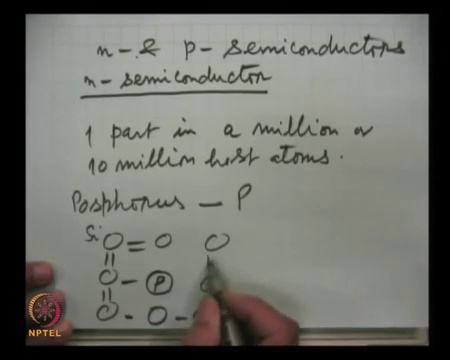 n- & p- semiconductors
n- semiconductor
1 part in a million or
10 million host atoms.
Posphorus — P
Si
P
NPTEL